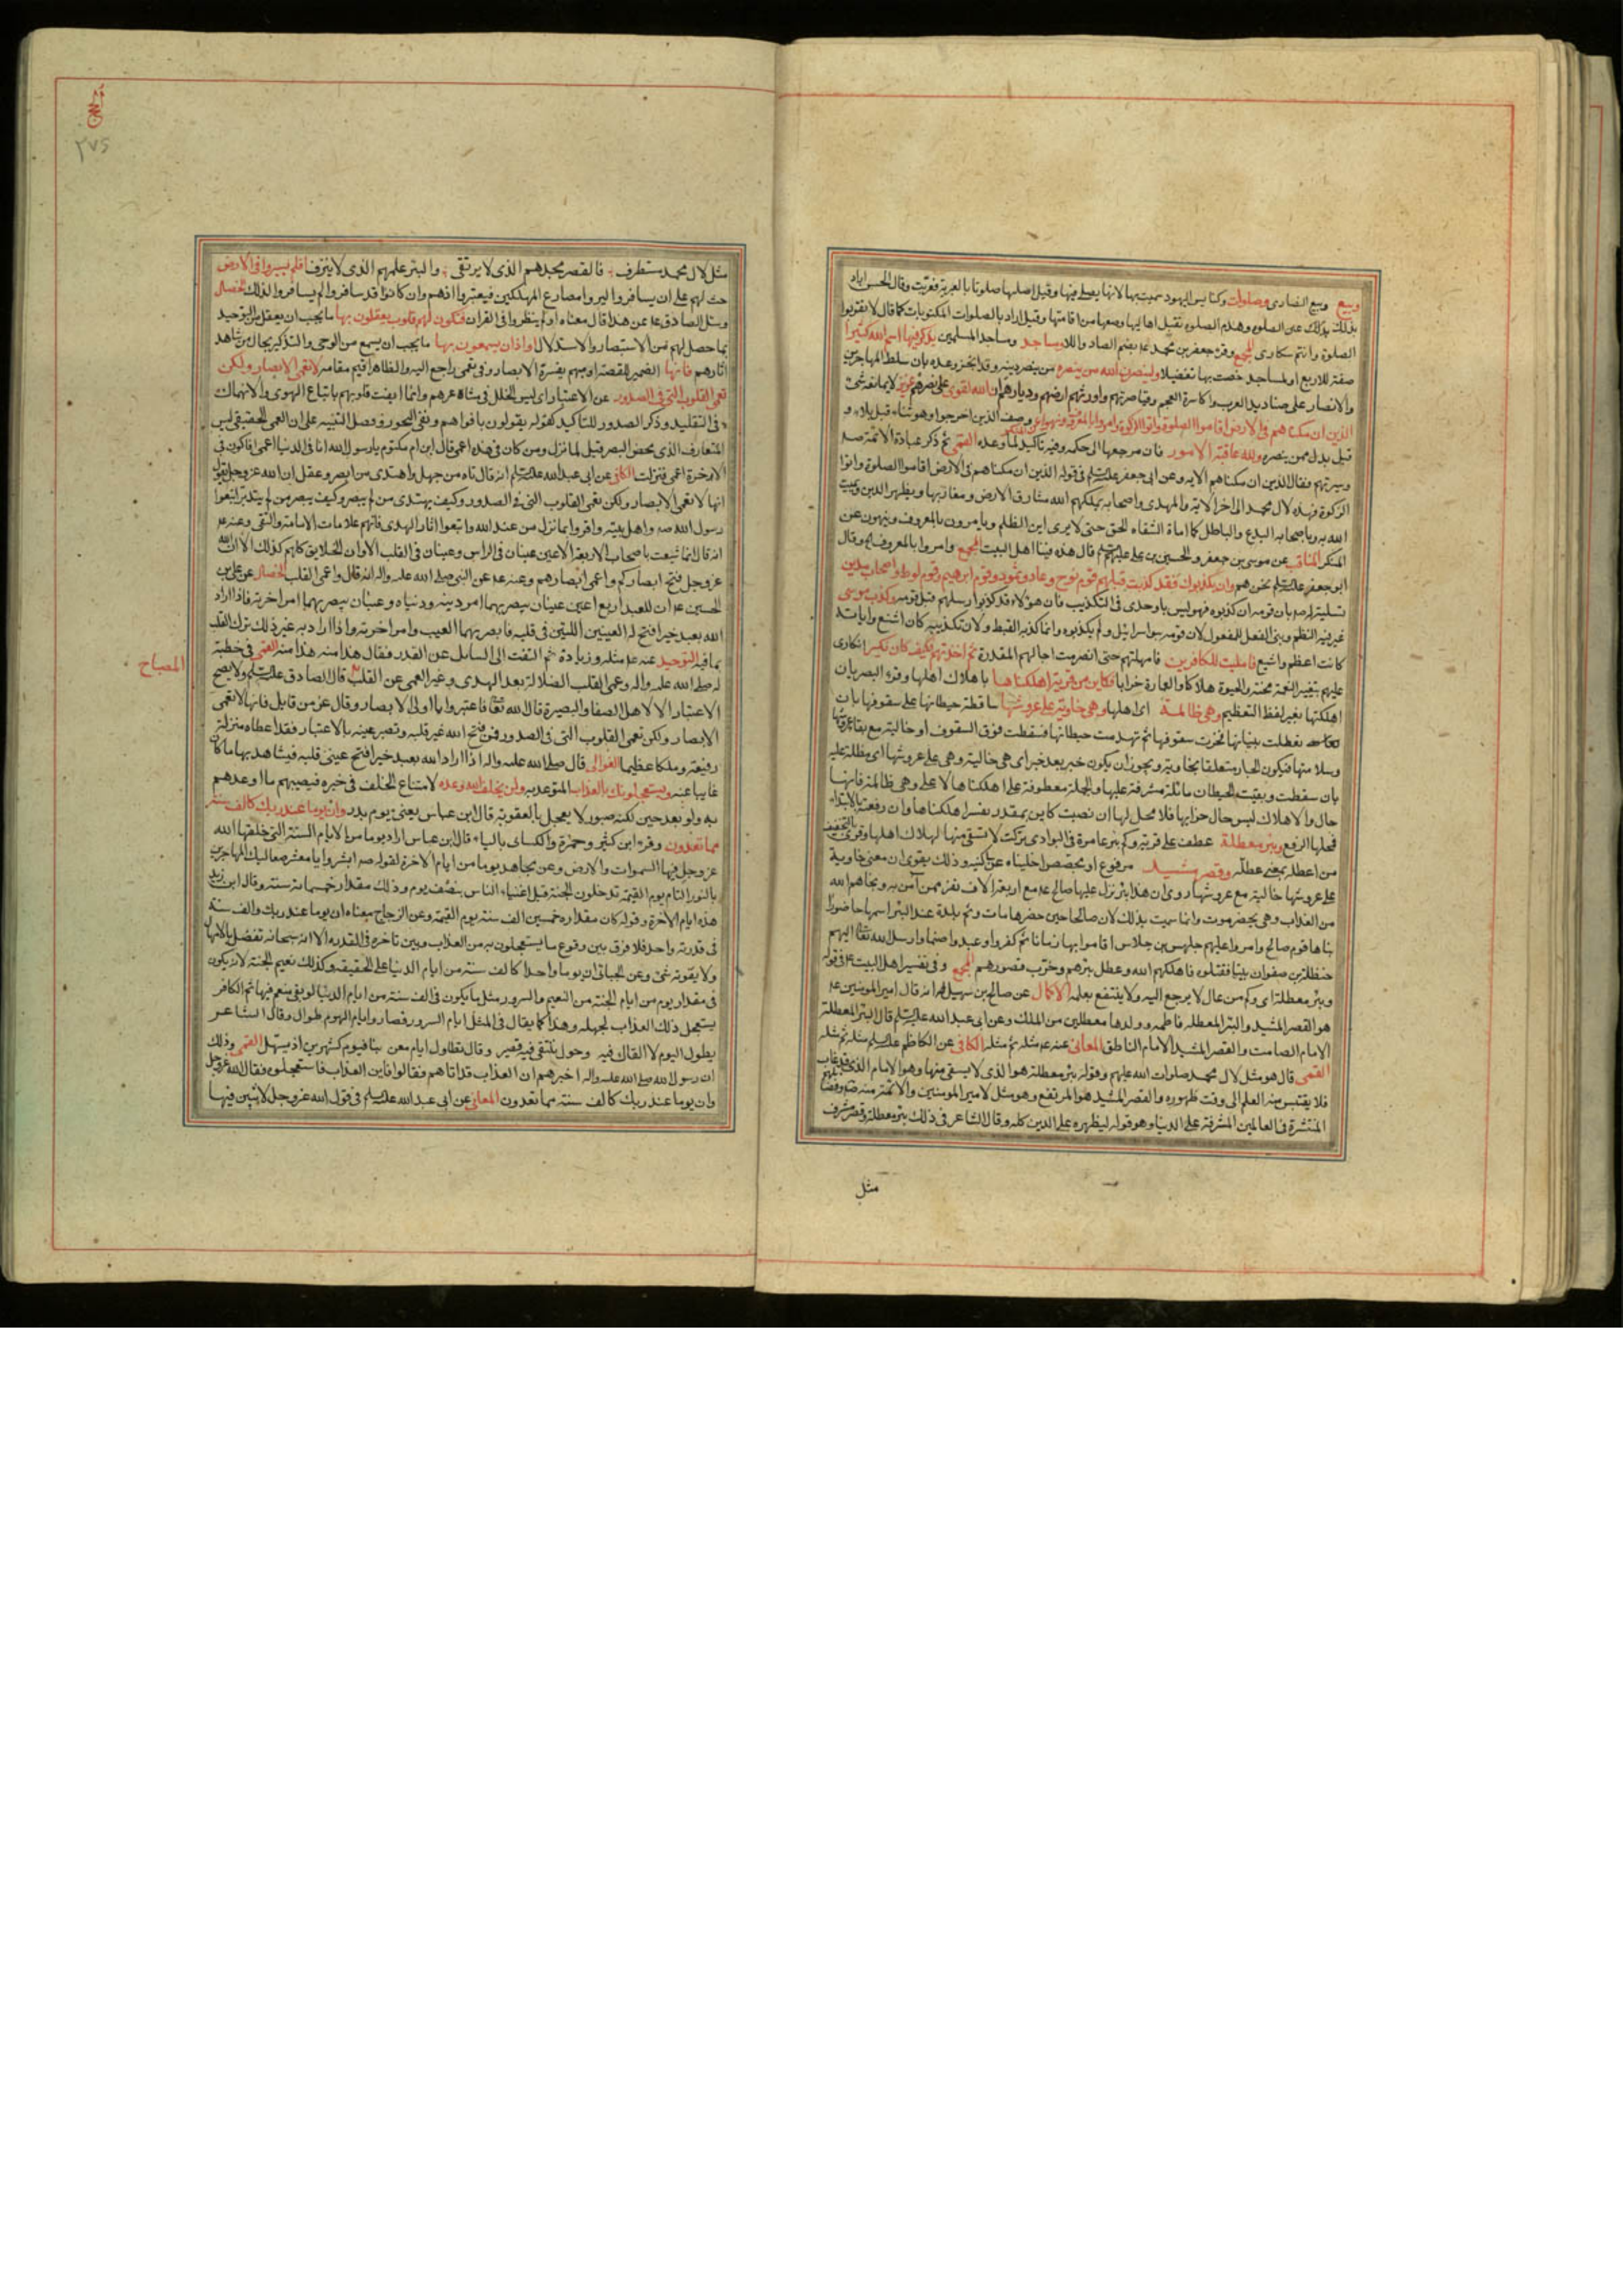 وبيع وبيع النصارى وصلوات وكنايس اليهود سميت بها لانها يصلى فيها وقيل اصلها صلوتا بالعبرية فعربت وقال الحسن اراد
بذلك عين الصلوة وهدم الصلوة بقتل اهاليها ومنعها من اقامتها وقيل اراد بالصلوات المكتوبات كما قال لا تقربوا
الصلوة وانتم سكارى المجمع وقرء جعفر بن محمد ع بضم الصاد واللام ومساجد ومساجد المسلمين يذكر فيها اسم الله كثيرا
صفة للاربع او لمساجد خصت بها تفضيلا ولينصرن الله من ينصره من ينصر دينه وقد انجز وعده بان سلط المهاجرين
والانصار على صناديد العرب واكاسرة العجم وقياصرتهم واورثهم ارضهم وديارهم ان الله لقوى على نصرهم عزيز لا يمانعه شئ
الذين ان مكناهم فى الارض اقاموا الصلوة واتوا الزكوة وامروا بالمعروف ونهوا عن المنكر وصف الذين اخرجوا وهو ثناء قبل بلاء و
قيل بدل ممن ينصره ولله عاقبة الامور فان مرجعها الى حكمه وفيه تاكيد لما وعده القمى ثم ذكر عبادة الائمة ص
وسيرتهم فقال الذين ان مكناهم الاية وعن ابى جعفر عليه السلم فى قوله الذين ان مكناهم فى الارض اقاموا الصلوة واتوا
الزكوة فهذه لال محمد الى اخر الاية والمهدى واصحابه يملكهم الله مشارق الارض ومغاربها ويظهر الدين ويميت
الله به وباصحابه البدع والباطل كما امات السفهاء الحق حتى لا يرى اين الظلم ويامرون بالمعروف وينهون عن
المنكر المناقب عن موسى بن جعفر والحسين بن على عليهم السلم قال هذه فينا اهل البيت المجمع وامروا بالمعروف وقال
ابو جعفر عليه السلم نحن هم وان يكذبوك فقد كذبت قبلهم قوم نوح وعاد وثمود وقوم ابرهيم وقوم لوط واصحاب مدين
تسلية له ص بان قومه ان كذبوه فهو ليس باوحدى فى التكذيب فان هؤلاء قد كذبوا رسلهم قبل قومه وكذب موسى
غير فيه النظم وبنى الفعل للمفعول لان قومه بنو اسرائيل ولم يكذبوه وانما كذبه القبط ولان تكذيبه كان اشنع واياته
كانت اعظم واشيع فامليت للكافرين فامهلتهم حتى انصرمت اجالهم المقدرة ثم اخذتهم فكيف كان نكير انكارى
عليهم بتغيير النعمة محنة والحيوة هلاكا والعمارة خرابا فكاين من قرية اهلكناها باهلاك اهلها وقرء البصريان
اهلكتها بغير لفظ التعظيم وهى ظالمة اى اهلها وهى خاوية على عروشها ساقطة حيطانها على سقوفها بان
تعطلت بنيانها فخرت سقوفها ثم تهدمت حيطانها فسقطت فوق السقوف او خالية مع بقاء عروشها
وسلامتها فيكون الجار متعلقا بخاوية ويجوز ان يكون خبر بعد خبر اى هى خالية وهى على عروشها اى مطلة عليه
بان سقطت وبقيت الحيطان ماثلة مشرفة عليها والجملة معطوفة على اهلكناها لا على وهى ظالمة فانها
حال والاهلاك ليس حال خرابها فلا محل لها ان نصبت كاين بمقدر يفسره اهلكناها وان رفعته بالابتداء
فمحلها الرفع وبئر معطلة عطف على قرية وكم بئر عامرة فى البوادى تركت لا تستقى منها لهلاك اهلها وقرئ بالتخفيف
من اعطله بمعنى عطله وقصر مشيد مرفوع او مجصص اخليناه عن ساكنيه وذلك يقوى ان معنى خاوية
على عروشها خالية مع عروشها روى ان هذا بئر نزل عليها صالح ع مع اربعة الاف نفر ممن آمن به ونجاهم الله
من العذاب وهى بحضرموت وانما سميت بذلك لان صالحا حين حضرها مات وثم بلدة عند البئر اسمها حاضورا
بناها قوم صالح وامروا عليهم جلهس بن جلاس اقاموا بها زمانا ثم كفروا وعبدوا صنما وارسل الله تعالى اليهم
حنظلة بن صفوان نبيا فقتلوه فاهلكهم الله وعطل بئرهم وخرب قصورهم المجمع وفى تفسير اهل البيت ع فى قوله
وبئر معطلة اى وكم من عالم لا يرجع اليه ولا ينتفع بعلمه الاكمال عن صالح بن سهيل انه قال امير المؤمنين ع
هو القصر المشيد والبئر المعطلة فاطمة وولدها معطلين من الملك وعن ابى عبد الله عليه السلم قال البئر المعطلة
الامام الصامت والقصر المشيد الامام الناطق المعانى عنه ع مثله ثم مثله الكافى عن الكاظم عليه السلم مثله ثم مثله
القمى قال هو مثل لال محمد صلوات الله عليهم وقوله بئر معطلة هو الذى لا يستقى منها وهو الامام الذى قد غاب
فلا يقتبس منه العلم الى وقت ظهوره والقصر المشيد هو المرتفع وهو مثل لامير المومنين والائمة منه ص وفضائلهم
المنتشرة فى العالمين المشرفة على الدنيا وهو قوله ليظهره على الدين كله وقال الشاعر فى ذلك بئر معطلة وقصر مشرف
مثل
الحج
٢٧٥
مثل لال محمد مستطرف فالقصر مجدهم الذى لا يرتقى والبئر علمهم الذى لا ينزف افلم يسيروا فى الارض
حث لهم على ان يسافروا ليروا مصارع المهلكين فيعتبروا اذهم وان كانوا قد سافروا لم يسافروا لذلك الخصال
وسئل الصادق ع عن هذا قال معناه اولم ينظروا فى القران فتكون لهم قلوب يعقلون بها ما يجب ان يعقل من التوحيد
بما حصل لهم من الاستبصار والاستدلال او اذان يسمعون بها ما يجب ان يسمع من الوحى والتذكير بحال من شاهد
اثارهم فانها الضمير للقصة او مبهم يفسره الابصار وفى تعمى راجع اليه والظاهر اقيم مقامه لا تعمى الابصار ولكن
تعمى القلوب التى فى الصدور عن الاعتبار اى ليس الخلل فى مشاعرهم وانما ايفت قلوبهم باتباع الهوى والانهماك
فى التقليد وذكر الصدور للتاكيد كقوله يقولون بافواههم ونفى التجوز وفصل التنبيه على ان العمى الحقيقى ليس
المتعارف الذى يخص البصر قيل لما نزل ومن كان فى هذه اعمى قال ابن ام مكتوم يا رسول الله انا فى الدنيا اعمى افاكون فى
الاخرة اعمى فنزلت الكافى عن ابى عبد الله عليه السلم انه قال تاه من جهل واهتدى من ابصر وعقل ان الله عز وجل يقول
انها لا تعمى الابصار ولكن تعمى القلوب التى فى الصدور وكيف يهتدى من لم يبصر وكيف يبصر من لم يتدبر اتبعوا
رسول الله ص واهل بيته واقروا بما نزل من عند الله واتبعوا اثار الهدى فانهم علامات الامامة والتقى وعنه ع
انه قال انما شيعت باصحاب الاربعة الاعين عينان فى الراس وعينان فى القلب الا وان الخلايق كلهم كذلك الا ان الله
عز وجل فتح ابصاركم واعمى ابصارهم وعنه ع عن النبى صلى الله عليه واله انه قال واعمى القلب الخصال عن على بن
الحسين ع ان للعبد اربع اعين عينان يبصر بهما امر دينه ودنياه وعينان يبصر بهما امر اخرته فاذا اراد
الله بعبد خيرا فتح له العينين اللتين فى قلبه فابصر بهما الغيب وامر اخرته واذا اراد به غير ذلك ترك القلب
بما فيه التوحيد عنه ع مثله وزيادة ثم التفت الى السائل عن القدر فقال هذا منه هذا منه القمى فى خطبة
له صلى الله عليه واله وعمى القلب الضلالة بعد الهدى وغير العمى عن القلب قال الصادق عليه السلم ولا يصح
المصباح
الاعتبار الا لاهل الصفا والبصيرة قال الله تعالى فاعتبروا يا اولى الابصار وقال عز من قايل فانها لا تعمى
الابصار ولكن تعمى القلوب التى فى الصدور فمن فتح الله عين قلبه وتصير عينه بالاعتبار فقد اعطاه منزلة
رفيعة وملكا عظيما الغوالى قال صلى الله عليه واله اذا اراد الله بعبد خيرا فتح عينى قلبه فيشاهد بها ما كان
غايبا عنه ويستعجلونك بالعذاب المتوعد به ولن يخلف الله وعده لامتناع الخلف فى خبره فيصيبهم ما اوعدهم
به ولو بعد حين لكنه صبور لا يعجل بالعقوبة قال ابن عباس يعنى يوم بدر وان يوما عند ربك كالف سنة
مما تعدون وقرء ابن كثير وحمزة والكسائى بالياء قال ابن عباس اراد يوما من الايام الستة التى خلقها الله
عز وجل فيها السموات والارض وعن مجاهد يوما من ايام الاخرة لقوله ص ابشروا يا معشر صعاليك المهاجرين
بالنور التام يوم القيمة تدخلون الجنة قبل اغنياء الناس بنصف يوم وذلك مقدار خمسمائة سنة وقال ابن زيد
هذه ايام الاخرة وقوله كان مقداره خمسين الف سنة يوم القيمة وعن الزجاج معناه ان يوما عند ربك والف سنة
فى قدرته واحد فلا فرق بين وقوع ما يستعجلون به من العذاب وبين تاخره فى القدرة الا انه سبحانه تفضل بالامهال
ولا يفوته شئ وعن الجبائى ان يوما واحدا كالف سنة من ايام الدنيا على الحقيقة وكذلك نعيم الجنة لانه يكون
فى مقدار يوم من ايام الجنة من النعيم والسرور مثل ما يكون فى الف سنة من ايام الدنيا لو بقى منعم فيها ثم الكافر
يستعجل ذلك العذاب لجهله وهذا كما يقال فى المثل ايام السرور قصار وايام الهموم طوال وقال الشاعر
يطول اليوم لا القاك فيه وحول نلتقى فيه قصير وقال تطاول ايام معن بنا فيوم كشهرين اذ يستهل القمى وذلك
ان رسول الله صلى الله عليه واله اخبرهم ان العذاب قد اتاهم فقالوا فاين العذاب فاستعجلوه فقال الله عز وجل
وان يوما عند ربك كالف سنة مما تعدون المعانى عن ابى عبد الله عليه السلم فى قول الله عز وجل لابثين فيها